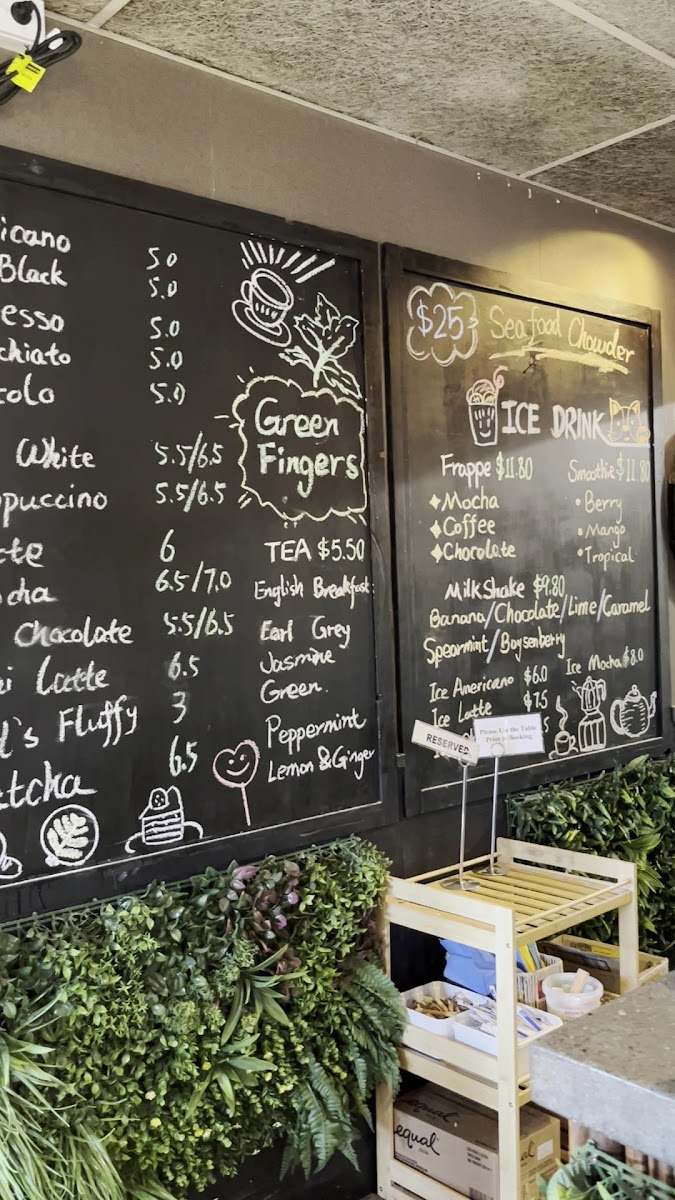 icano 5.0
Black 5.0
esso 5.0
chiato 5.0
colo 5.0
White 5.5/6.5
ppuccino 5.5/6.5
tte 6
cha 6.5/7.0
Chocolate 5.5/6.5
ai Latte 6.5
d's Fluffy 3
atcha 6.5
Green
Fingers
TEA $5.50
English Breakfast
Earl Grey
Jasmine
Green
Peppermint
Lemon & Ginger
$25 Seafood Chowder
ICE DRINK
Frappe $11.80
♦Mocha
♦Coffee
♦Chocolate
Smoothie $11.80
• Berry
• Mango
• Tropical
MilkShake $9.80
Banana/Chocolate/Lime/Caramel
Spearmint/Boysenberry
Ice Mocha $8.0
Ice Americano $6.0
Ice Latte $7.5
RESERVED
Please Use the Table
Prior to Booking
equal
equal